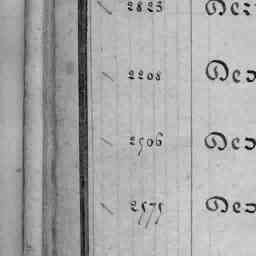 2825 Der
2208 Des
2506 Des
2575 Des